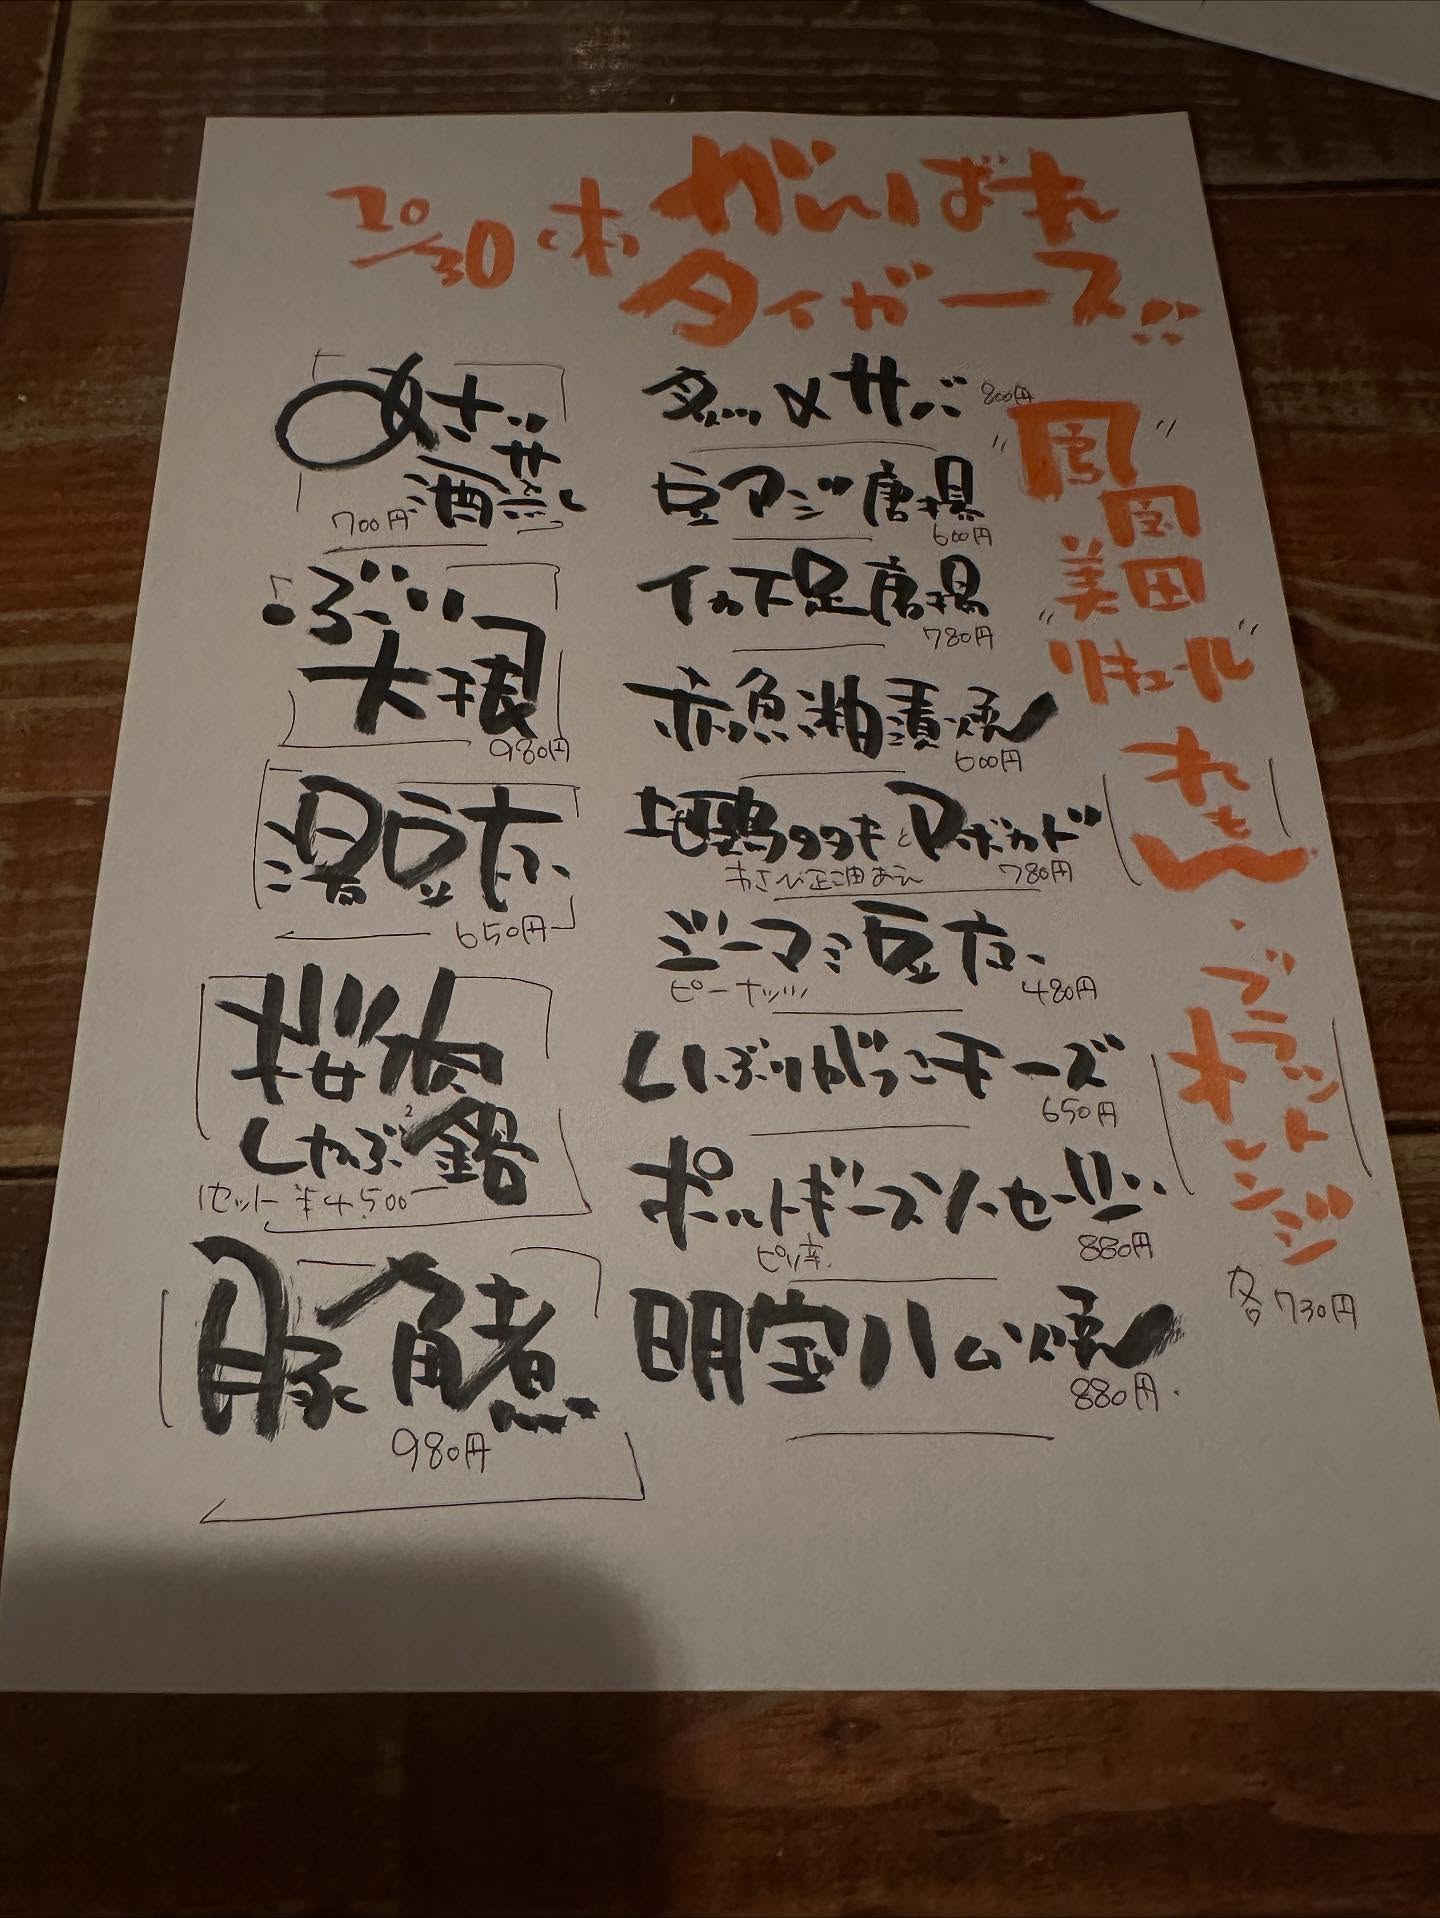 10/30 (木) がんばれ
タイガース!!
あさり
酒蒸し
700円
ぶり
大根
980円
湯豆腐
650円
桜肉
しゃぶ2鍋
1セット ¥4,500ー
豚角煮
980円
〆サバ 800円
豆アジ唐揚
600円
イカ下足唐揚
780円
赤魚粕漬焼
600円
地鶏タタキとアボカド
わさび正油あえ 780円
ジーマミ豆腐
ピーナッツ 480円
いぶりがっこチーズ
650円
ポルトギースソーセージ
ピリ辛 880円
明宝ハム焼
880円
"鳳凰
美田
リキュール"
れもん
・ブラッド
オレンジ
各730円